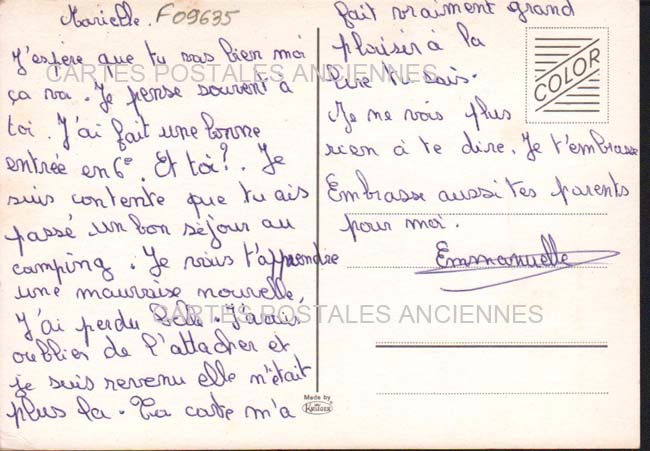 Marielle. F09635
J'espère que tu vas bien moi
ça va. Je pense souvent à
toi. J'ai fait une bonne
entrée en 6e. Et toi?. Je
suis contente que tu ais
passé un bon séjour au
camping. Je vais t'apprendre
une mauvaise nouvelle,
J'ai perdu Belle. J'avais
oublier de l'attacher et
je suis revenu elle n'était
plus la. Ta carte m'a
fait vraiment grand
plaisir à la
lire tu sais.
Je ne vois plus
rien à te dire. Je t'embrasse
Embrasse aussi tes parents
pour moi.
Emmanuelle
COLOR
Made by
KRÜGER
CARTES POSTALES ANCIENNES
CARTES POSTALES ANCIENNES